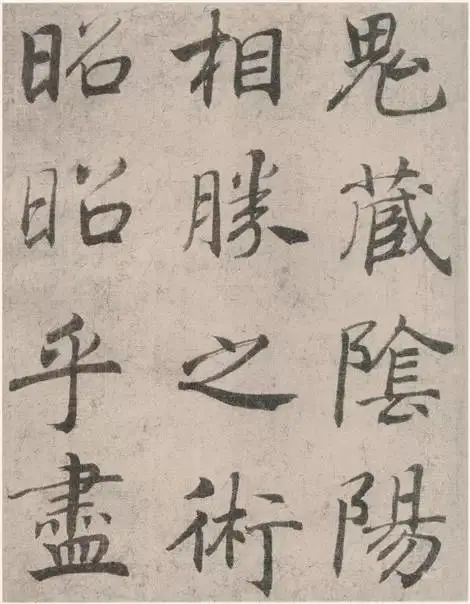 鬼藏陰陽
相勝之術
昭昭乎盡